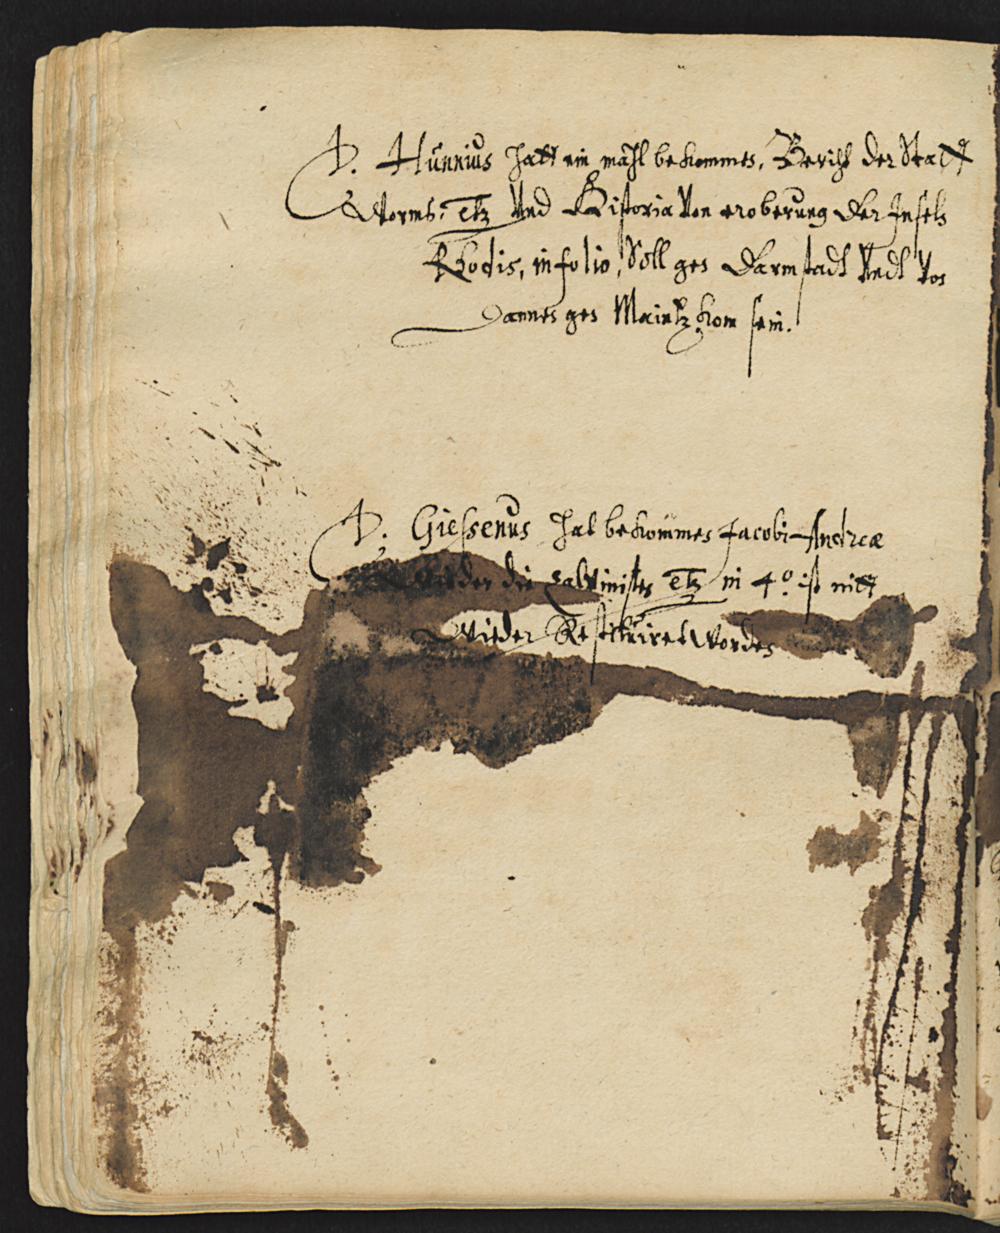 D. Hünnius hatt ein mahl bekommen, Bericht der Statt
Worms, Etz Vnd Historia Von eroberung der Inseln
Rhodis, in folio, Soll gen Darmstadt Vndt Von
dannen gen Maintz kom sein.
D. Giessenus hat bekommen Jacobi Andreæ
Wieder die Calvinisten Etz in 4.º ist nitt
Wieder Restituiret Worden